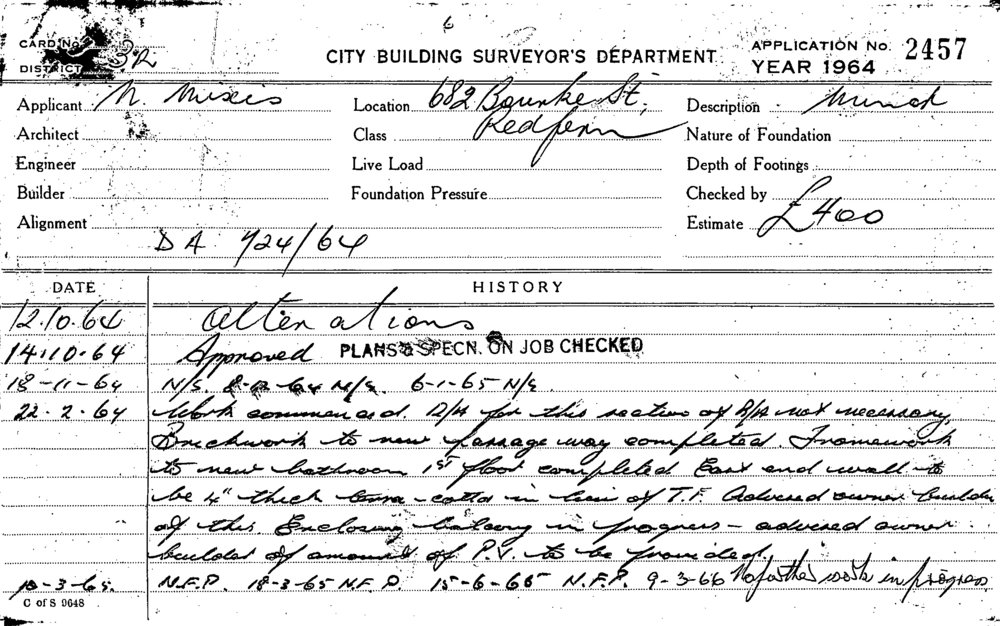 6
CARD No.
DISTRICT 32
CITY BUILDING SURVEYOR'S DEPARTMENT
APPLICATION No. 2457
YEAR 1964
Applicant N. Location 682 Bourke St, Description
Redfern
Architect Class Nature of Foundation
Engineer Live Load Depth of Footings
Builder Foundation Pressure Checked by
Alignment Estimate £400
DA 724/64
DATE HISTORY
12.10.64 Alterations
14.10.64 Approved PLANS & SPECN. ON JOB CHECKED
18-11-64 N/S. 8-12-64 N/S. 6-1-65 N/S.
22.2.64 Work commenced. for this section of not necessary,
Brickwork to new passage way completed. Framework
to new bathroom 1st floor completed East end wall to
be 4" thick terra-cotta in lieu of T.F. Advised owner builder
of this. Enclosing balcony in progress - advised owner
builder of amount of P.V. to be provided.
10-3-65. N.F.P. 18-3-65 N.F.P. 15-6-65 N.F.P. 9-3-66 No further work in progress
C of S 9648